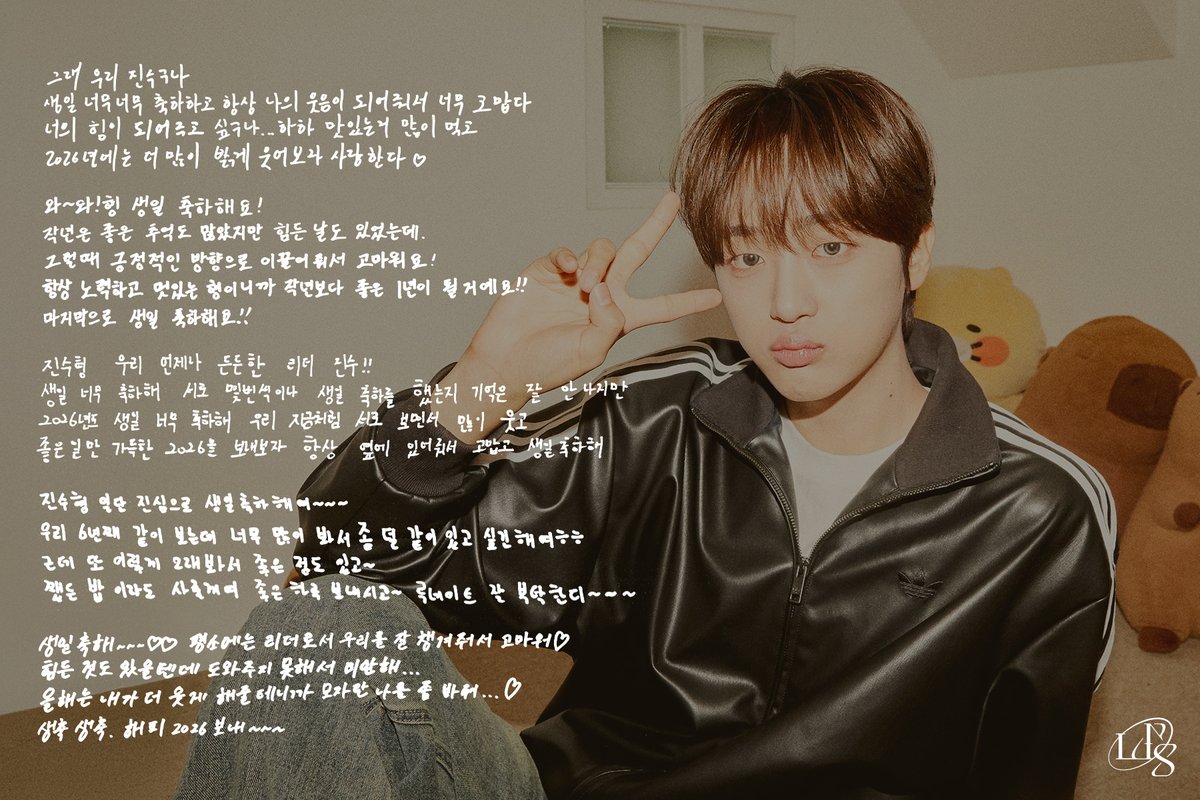 그래 우리 진수구나
생일 너무너무 축하하고 항상 나의 웃음이 되어줘서 너무 고맙다
너의 힘이 되어주고 싶구나...하하 맛있는거 많이 먹고
2026년에는 더 많이 밝게 웃어보자 사랑한다 ♡
와~와!형 생일 축하해요!
작년은 좋은 추억도 많았지만 힘든 날도 있었는데.
그럴때 긍정적인 방향으로 이끌어줘서 고마워요!
항상 노력하고 멋있는 형이니까 작년보다 좋은 1년이 될거에요!!
마지막으로 생일 축하해요!!
진수형 우리 언제나 든든한 리더 진수!!
생일 너무 축하해 서로 몇번씩이나 생일 축하를 했는지 기억은 잘 안나지만
2026년도 생일 너무 축하해 우리 지금처럼 서로 보면서 많이 웃고
좋은일만 가득한 2026을 보내보자 항상 옆에 있어줘서 고맙고 생일축하해
진수형 일단 진심으로 생일축하해여~~~
우리 6년째 같이 보는데 너무 많이 봐서 좀 덜 같이 있고 싶긴해여ㅎㅎ
근데 또 이렇게 오래봐서 좋은 점도 있고~
쨌든 밥 이라도 사줄게여 좋은하루 보내시고~ 루네이트 잘 부탁한디~~~
생일축해~~~♡♡ 평소에는 리더로서 우리를 잘 챙겨줘서 고마워♡
힘든 것도 있을텐데 도와주지 못해서 미안해...
올해는 내가 더 웃게 해줄테니까 모자란 나를 좀 봐줘... ♡
생축 생축. 해피 2026 보내~~~